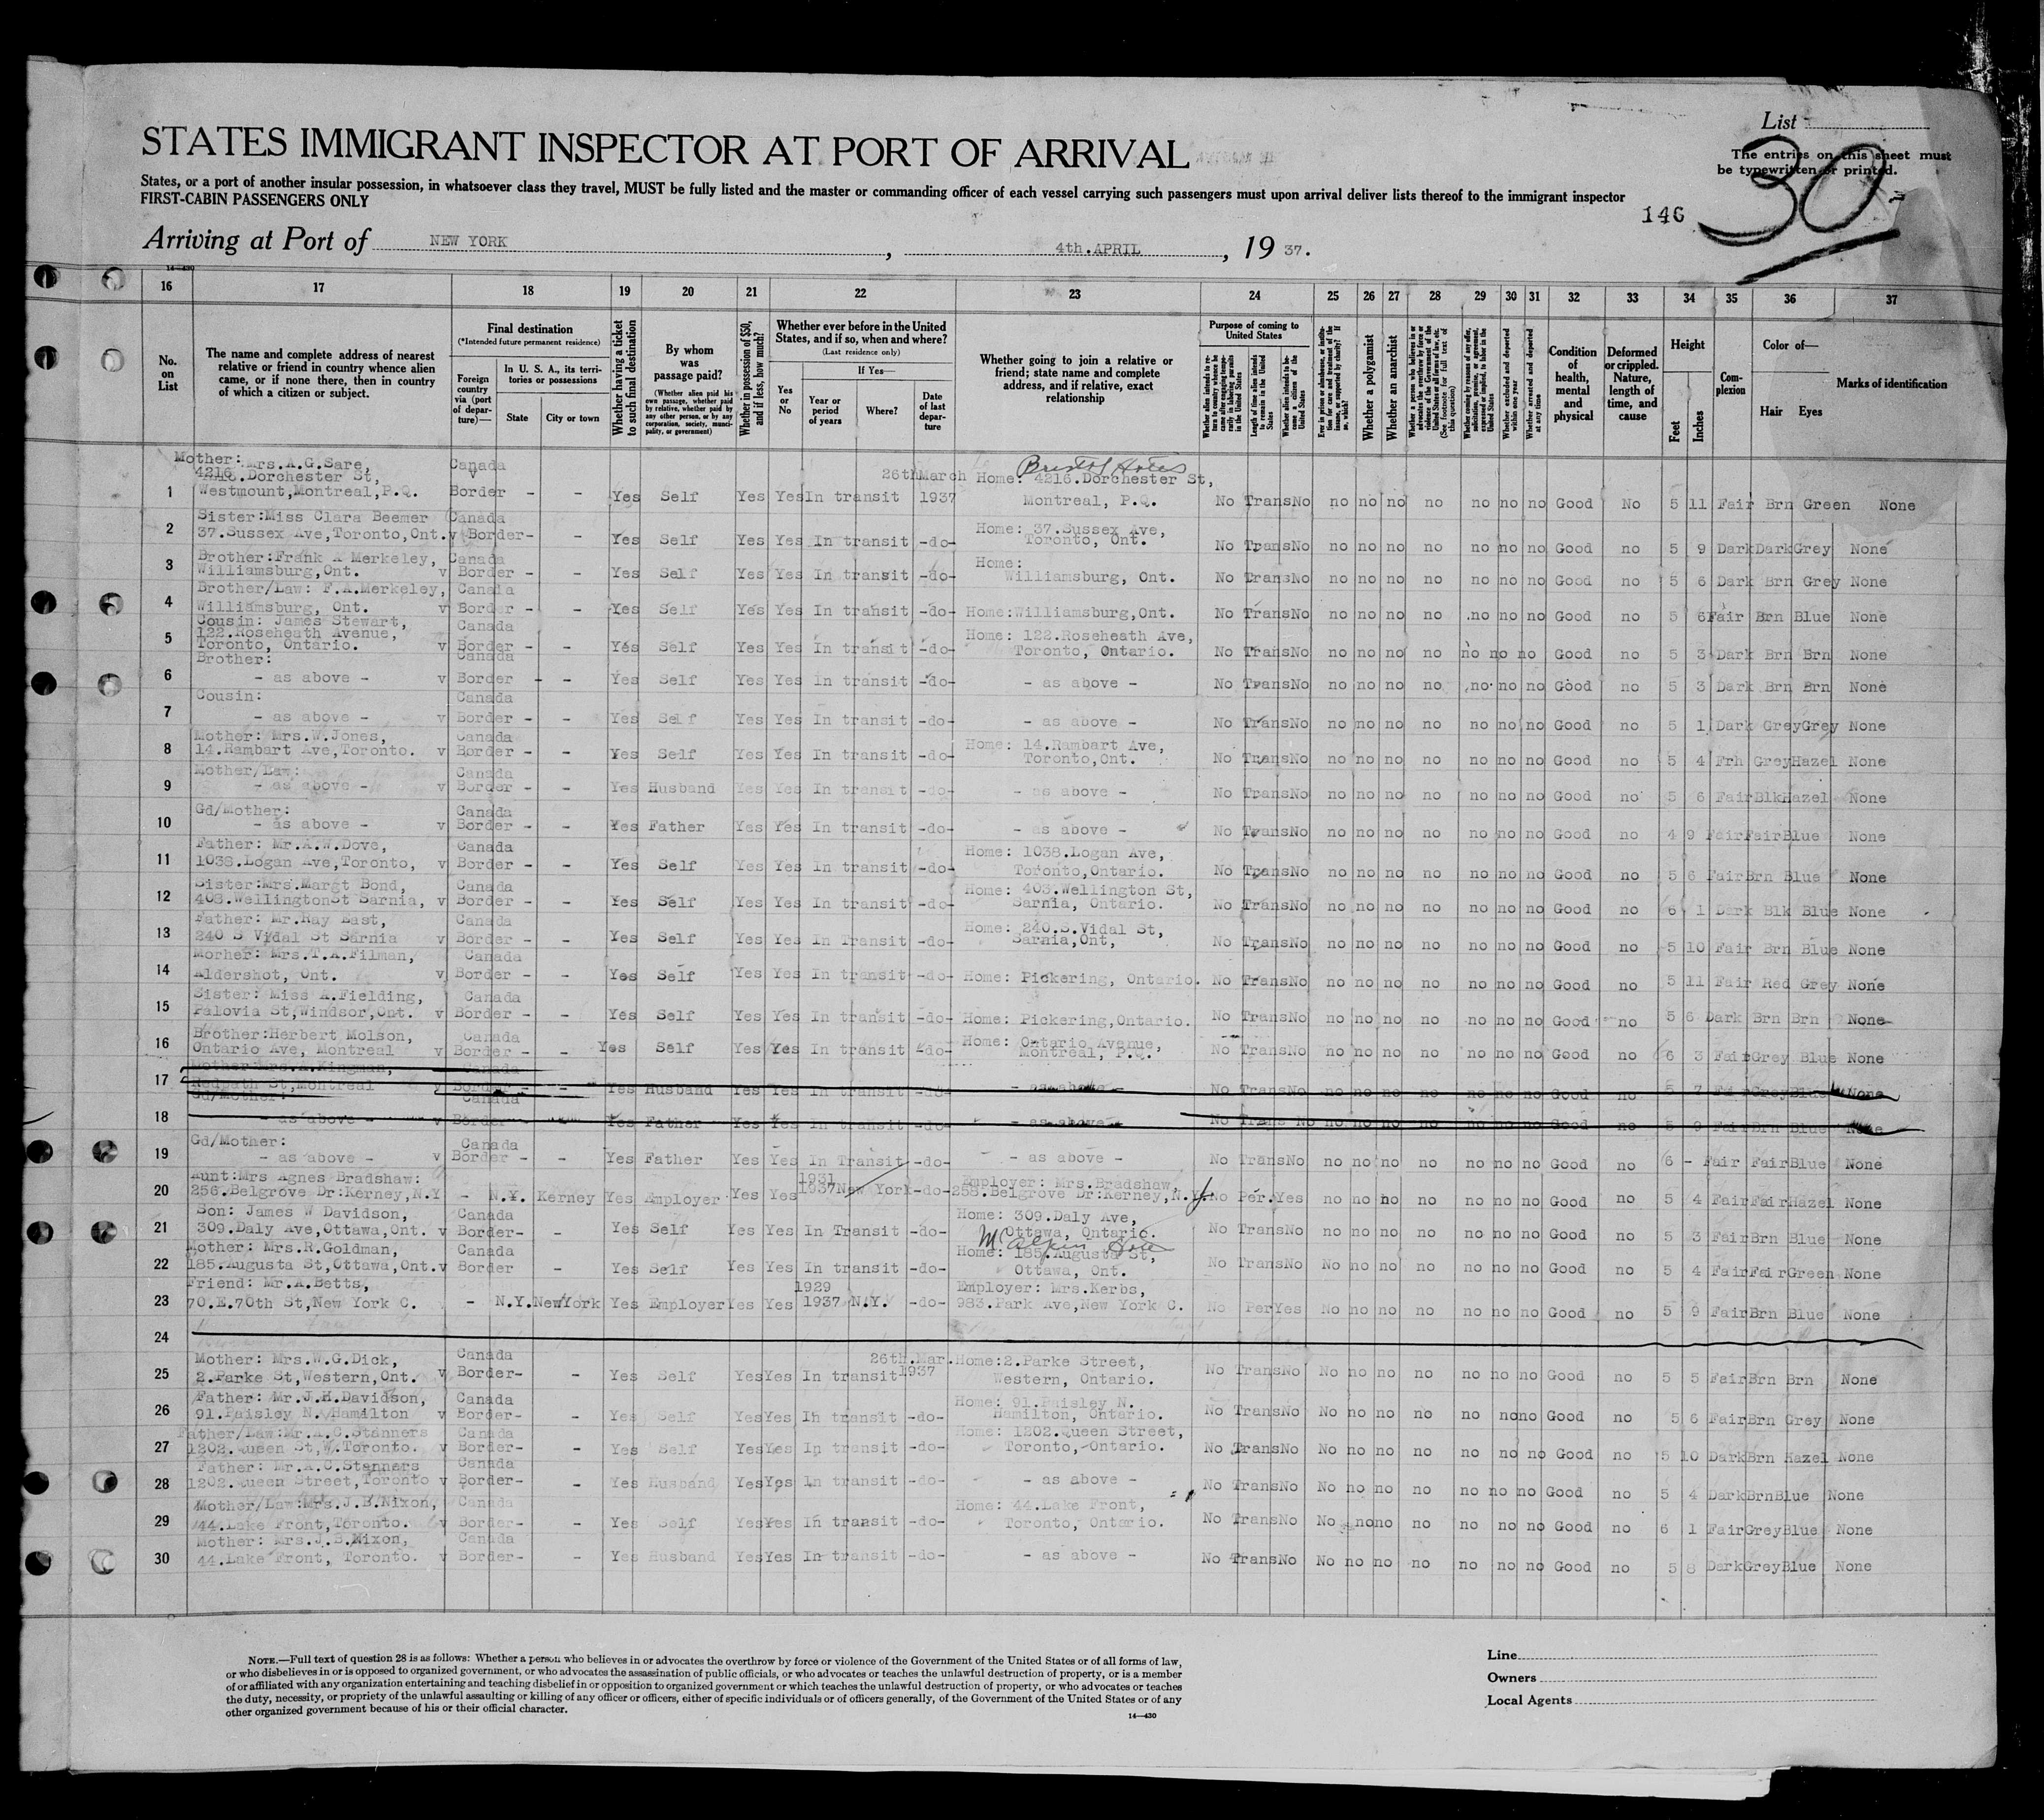 List
30
The entries on this sheet must
be typewritten or printed.
STATES IMMIGRANT INSPECTOR AT PORT OF ARRIVAL
States, or a port of another insular possession, in whatsoever class they travel, MUST be fully listed and the master or commanding officer of each vessel carrying such passengers must upon arrival deliver lists thereof to the immigrant inspector
FIRST-CABIN PASSENGERS ONLY
146
Arriving at Port of NEW YORK, 4th.APRIL, 19 37.
14—430
16 17 18 19 20 21 22 23 24 25 26 27 28 29 30 31 32 33 34 35 36 37
No. on List
The name and complete address of nearest relative or friend in country whence alien came, or if none there, then in country of which a citizen or subject.
Final destination
(*Intended future permanent residence)
Foreign country via (port of departure)—
In U. S. A., its territories or possessions
State
City or town
Whether having a ticket to such final destination
By whom was passage paid?
(Whether alien paid his own passage, whether paid by relative, whether paid by any other person, or by any corporation, society, municipality, or government)
Whether in possession of $50, and if less, how much?
Whether ever before in the United States, and if so, when and where?
(Last residence only)
Yes or No
If Yes—
Year or period of years
Where?
Date of last departure
Whether going to join a relative or friend; state name and complete address, and if relative, exact relationship
Purpose of coming to United States
Length of time alien intends to remain in the United States
Whether alien intends to become a citizen of the United States
Whether a polygamist
Whether an anarchist
(See footnote for full text of this question)
Whether excluded and deported within one year
Whether arrested and deported at any time
Condition of health, mental and physical
Deformed or crippled. Nature, length of time, and cause
Height
Feet
Inches
Complexion
Color of—
Hair
Eyes
Marks of identification
Bristol Hotel
1 Mother: Mrs.A.G.Sare, 4216.Dorchester St, Westmount,Montreal,P.Q. Canada v Border - - Yes Self Yes Yes In transit 26th March 1937 Home: 4216.Dorchester St, Montreal, P.Q. No Trans No no no no no no no no Good No 5 11 Fair Brn Green None
2 Sister:Miss Clara Beemer 37.Sussex Ave,Toronto,Ont. v Canada Border- - Yes Self Yes Yes In transit -do- Home: 37.Sussex Ave, Toronto, Ont. No Trans No no no no no no no no Good no 5 9 Dark Dark Grey None
3 Brother:Frank A Merkeley, Williamsburg,Ont. v Canada Border - - Yes Self Yes Yes In transit -do- Home: Williamsburg, Ont. No Trans No no no no no no no no Good no 5 6 Dark Brn Grey None
4 Brother/Law: F.A.Merkeley, Williamsburg, Ont. v Canada Border - - Yes Self Yes Yes In transit -do- Home:Williamsburg,Ont. No Trans No no no no no no no no Good no 5 6 Fair Brn Blue None
5 Cousin: James Stewart, 122.Roseheath Avenue, Toronto, Ontario. v Canada Border - - Yes Self Yes Yes In transit -do- Home: 122.Roseheath Ave, Toronto, Ontario. No Trans No no no no no no no no Good no 5 3 Dark Brn Brn None
6 Brother: - as above - v Canada Border - - Yes Self Yes Yes In transit -do- - as above - No Trans No no no no no no no no Good no 5 3 Dark Brn Brn None
7 Cousin: - as above - v Canada Border - - Yes Self Yes Yes In transit -do- - as above - No Trans No no no no no no no no Good no 5 1 Dark Grey Grey None
8 Mother: Mrs.W.Jones, 14.Rambart Ave,Toronto. v Canada Border - - Yes Self Yes Yes In transit -do- Home: 14.Rambart Ave, Toronto,Ont. No Trans No no no no no no no no Good no 5 4 Frh Grey Hazel None
9 Mother/Law: - as above - v Canada Border - - Yes Husband Yes Yes In transit -do- - as above - No Trans No no no no no no no no Good no 5 6 Fair Blk Hazel None
10 Gd/Mother: - as above - v Canada Border - - Yes Father Yes Yes In transit -do- - as above - No Trans No no no no no no no no Good no 4 9 Fair Fair Blue None
11 Father: Mr.A.W.Dove, 1038.Logan Ave,Toronto, v Canada Border - - Yes Self Yes Yes In transit -do- Home: 1038.Logan Ave, Toronto,Ontario. No Trans No no no no no no no no Good no 5 6 Fair Brn Blue None
12 Sister:Mrs.Margt Bond, 403.WellingtonSt Sarnia, v Canada Border - - Yes Self Yes Yes In transit -do- Home: 403.Wellington St, Sarnia, Ontario. No Trans No no no no no no no no Good no 6 1 Dark Blk Blue None
13 Father: Mr.Ray East, 240 S Vidal St Sarnia v Canada Border - - Yes Self Yes Yes In Transit -do- Home: 240.S.Vidal St, Sarnia,Ont, No Trans No no no no no no no no Good no 5 10 Fair Brn Blue None
14 Morher: Mrs.T.A.Filman, Aldershot, Ont. v Canada Border - - Yes Self Yes Yes In transit -do- Home: Pickering, Ontario. No Trans No no no no no no no no Good no 5 11 Fair Red Grey None
15 Sister: Miss A.Fielding, Palovia St,Windsor,Ont. v Canada Border - - Yes Self Yes Yes In transit -do- Home: Pickering,Ontario. No Trans No no no no no no no no Good no 5 6 Dark Brn Brn None
16 Brother:Herbert Molson, Ontario Ave, Montreal v Canada Border - - Yes Self Yes Yes In transit -do- Home: Ontario Avenue, Montreal, P.Q. No Trans No no no no no no no no Good no 6 3 Fair Grey Blue None
17 Mother:Mrs.A.Kingman, Redpath St,Montreal v Canada Border - - Yes Husband Yes Yes In transit -do- - as above - No Trans No no no no no no no no Good no 5 7 Fair Grey Blue None
18 Gd/Mother: - as above - v Canada Border - Yes Father Yes Yes In transit -do- - as above - No Trans No no no no no no no no Good no 5 9 Fair Brn Blue None
19 Gd/Mother: - as above - v Canada Border - - Yes Father Yes Yes In Transit -do- - as above - No Trans No no no no no no no no Good no 6 - Fair Fair Blue None
20 Aunt:Mrs Agnes Bradshaw: 256.Belgrove Dr:Kerney,N.Y - N.Y. Kerney Yes Employer Yes Yes 1931 1937 New York -do- Employer: Mrs.Bradshaw, 258.Belgrove Dr:Kerney,N.Y. No Per. Yes no no no no no no no Good no 5 4 Fair Fair Hazel None
21 Son: James W Davidson, 309.Daly Ave,Ottawa,Ont. v Canada Border- - Yes Self Yes Yes In Transit -do- Home: 309.Daly Ave, Ottawa, Ontario. No Trans No no no no no no no no Good no 5 3 Fair Brn Blue None
McAlpin Hotel
22 Mother: Mrs.R.Goldman, 185.Augusta St,Ottawa,Ont. v Canada Border - Yes Self Yes Yes In transit -do- Home: 185.Augusta St, Ottawa, Ont. No Trans No No no no no no no no Good no 5 4 Fair Fair Green None
23 Friend: Mr.A.Betts, 70.E.70th St,New York C. - N.Y. NewYork Yes Employer Yes Yes 1929 1937 N.Y. -do- Employer: Mrs.Kerbs, 983.Park Ave,New York C. No Per Yes No no no no no no no Good no 5 9 Fair Brn Blue None
24
25 Mother: Mrs.W.G.Dick, 2.Parke St,Western,Ont. v Canada Border- - Yes Self Yes Yes In transit 26th.Mar. 1937 Home:2.Parke Street, Western, Ontario. No Trans No No no no no no no no Good no 5 5 Fair Brn Brn None
26 Father: Mr.J.H.Davidson, 91.Paisley N. Hamilton v Canada Border- - Yes Self Yes Yes In transit -do- Home: 91.Paisley N. Hamilton, Ontario. No Trans No No no no no no no no Good no 5 6 Fair Brn Grey None
27 Father/Law:Mr.A.C.Stanners 1202.Queen St,W.Toronto. v Canada Border- - Yes Self Yes Yes In transit -do- Home: 1202.Queen Street, Toronto, Ontario. No Trans No No no no no no no no Good no 5 10 Dark Brn Hazel None
28 Father: Mr.A.C.Stanners 1202.Queen Street,Toronto v Canada Border- - Yes Husband Yes Yes In transit -do- - as above - No Trans No No no no no no no no Good no 5 4 Dark Brn Blue None
29 Mother/Law:Mrs.J.B.Nixon, 44.Lake Front,Toronto. v Canada Border- - Yes Self Yes Yes In transit -do- Home: 44.Lake Front, Toronto, Ontario. No Trans No No no no no no no no Good no 6 1 Fair Grey Blue None
30 Mother: Mrs.J.B.Nixon, 44.Lake Front, Toronto. v Canada Border- - Yes Husband Yes Yes In transit -do- - as above - No Trans No No no no no no no no Good no 5 8 Dark Grey Blue None
NOTE.—Full text of question 28 is as follows: Whether a person who believes in or advocates the overthrow by force or violence of the Government of the United States or of all forms of law,
or who disbelieves in or is opposed to organized government, or who advocates the assassination of public officials, or who advocates or teaches the unlawful destruction of property, or is a member
of or affiliated with any organization entertaining and teaching disbelief in or opposition to organized government or which teaches the unlawful destruction of property, or who advocates or teaches
the duty, necessity, or propriety of the unlawful assaulting or killing of any officer or officers, either of specific individuals or of officers generally, of the Government of the United States or of any
other organized government because of his or their official character.
14—430
Line
Owners
Local Agents